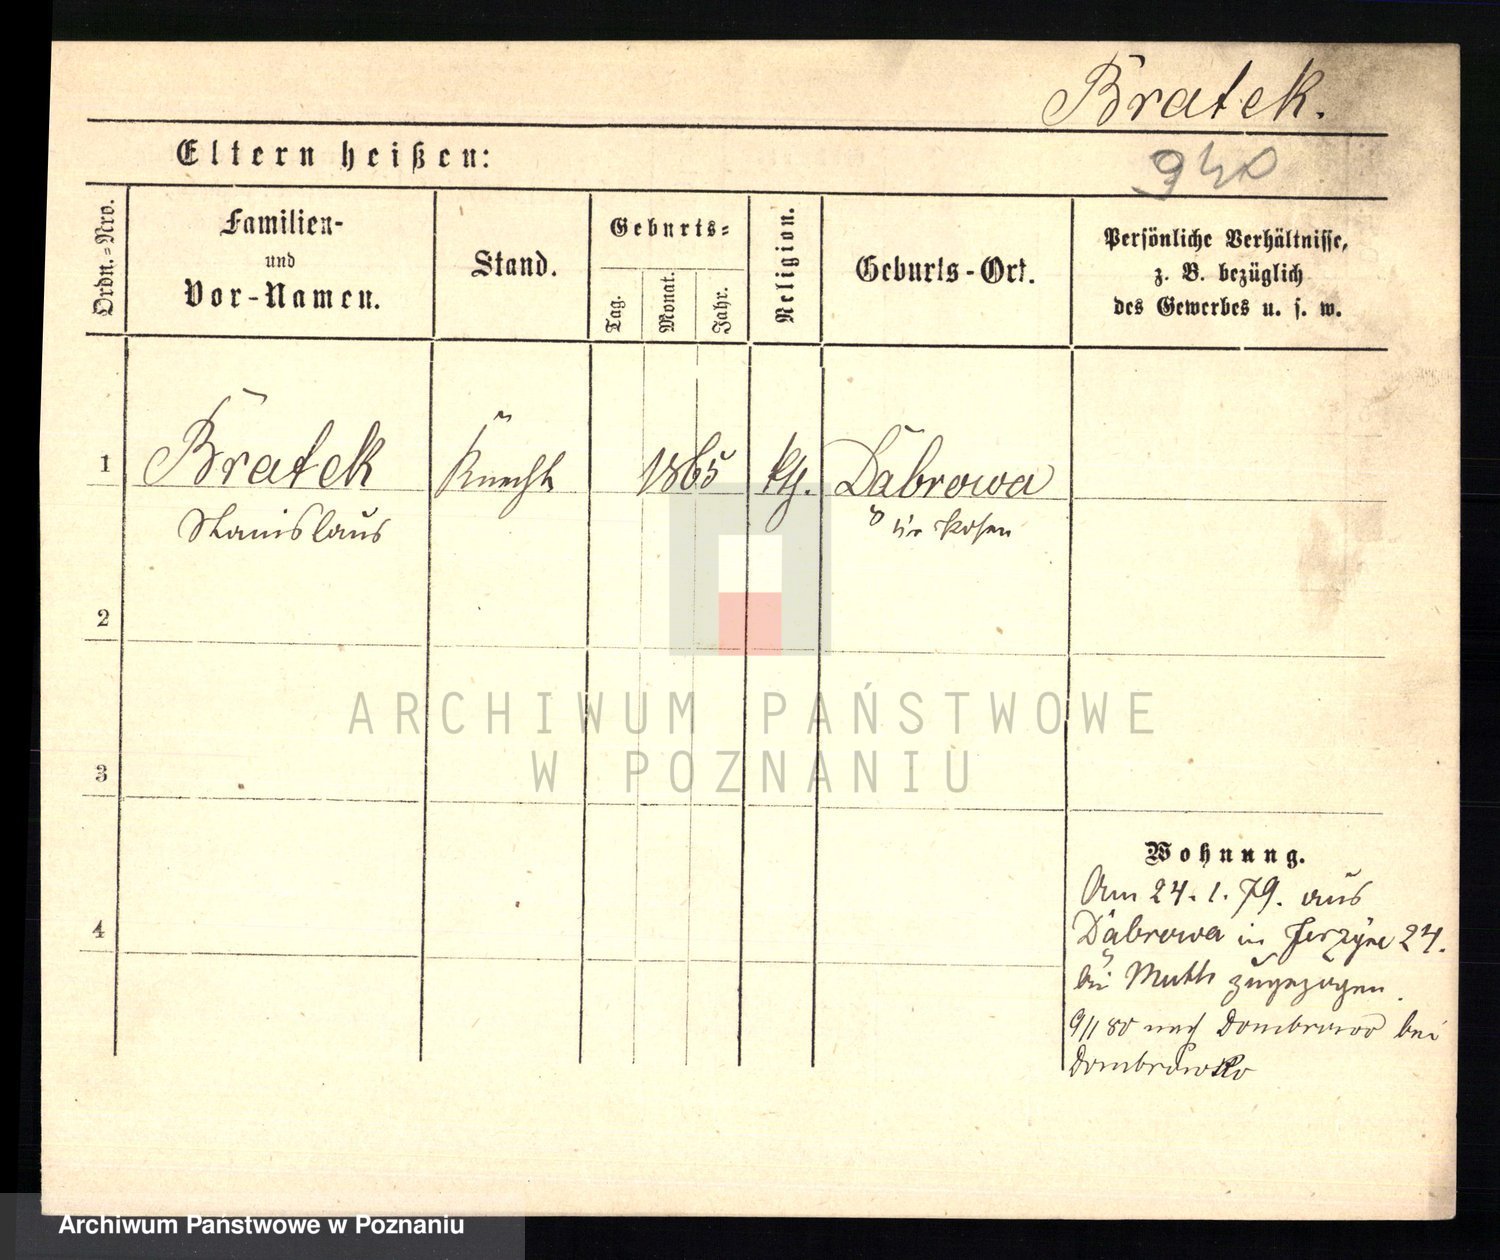 Bratek.
Eltern heißen:
940
Ordn.-Nro.
Familien-
und
Vor-Namen.
Stand.
Geburts-
Tag.
Monat.
Jahr.
Religion.
Geburts-Ort.
Persönliche Verhältnisse,
z. B. bezüglich
des Gewerbes u. s. w.
1
Bratek
Knecht
1865
kth.
Dąbrowa
Stanislaus
Kr Posen
2
ARCHIWUM PAŃSTWOWE
W POZNANIU
3
Wohnung.
Am 24. 1. 79. aus
4
Dąbrowa in Jerzyce 24.
bei Muth zugezogen.
9/1 80 nach Dombrowo bei
Dombrowka
Archiwum Państwowe w Poznaniu